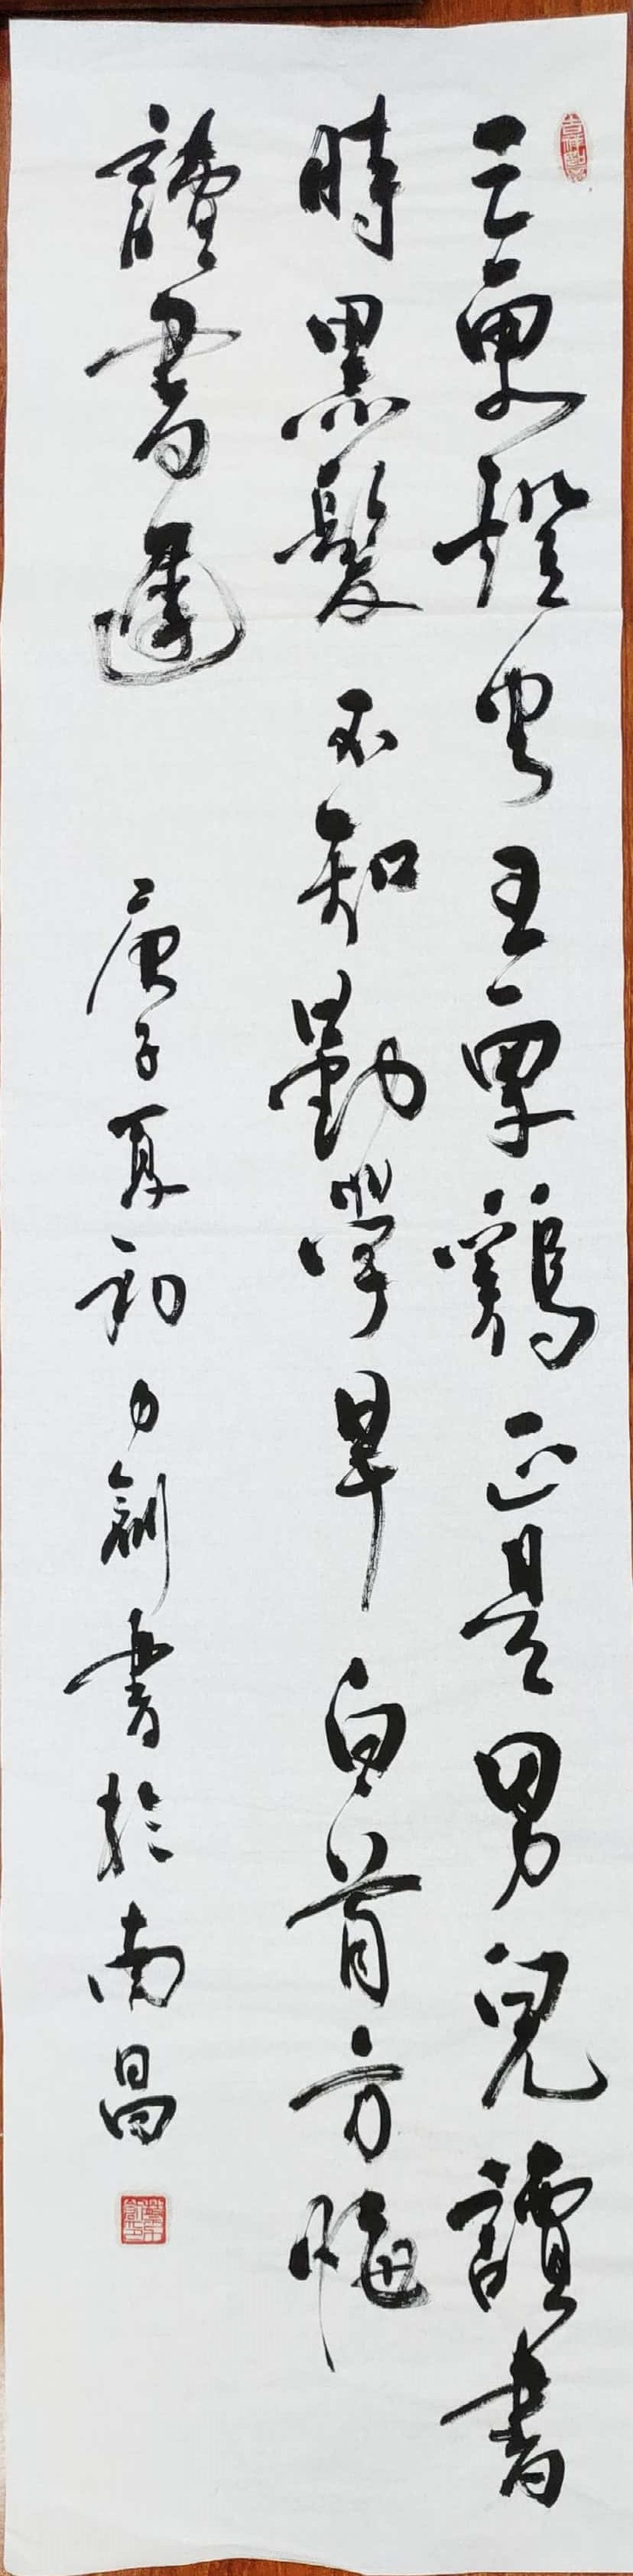 三更燈火五更鷄正是男兒讀書
時黑髮不知勤學早白首方悔
讀書遲 庚子夏 書於南昌